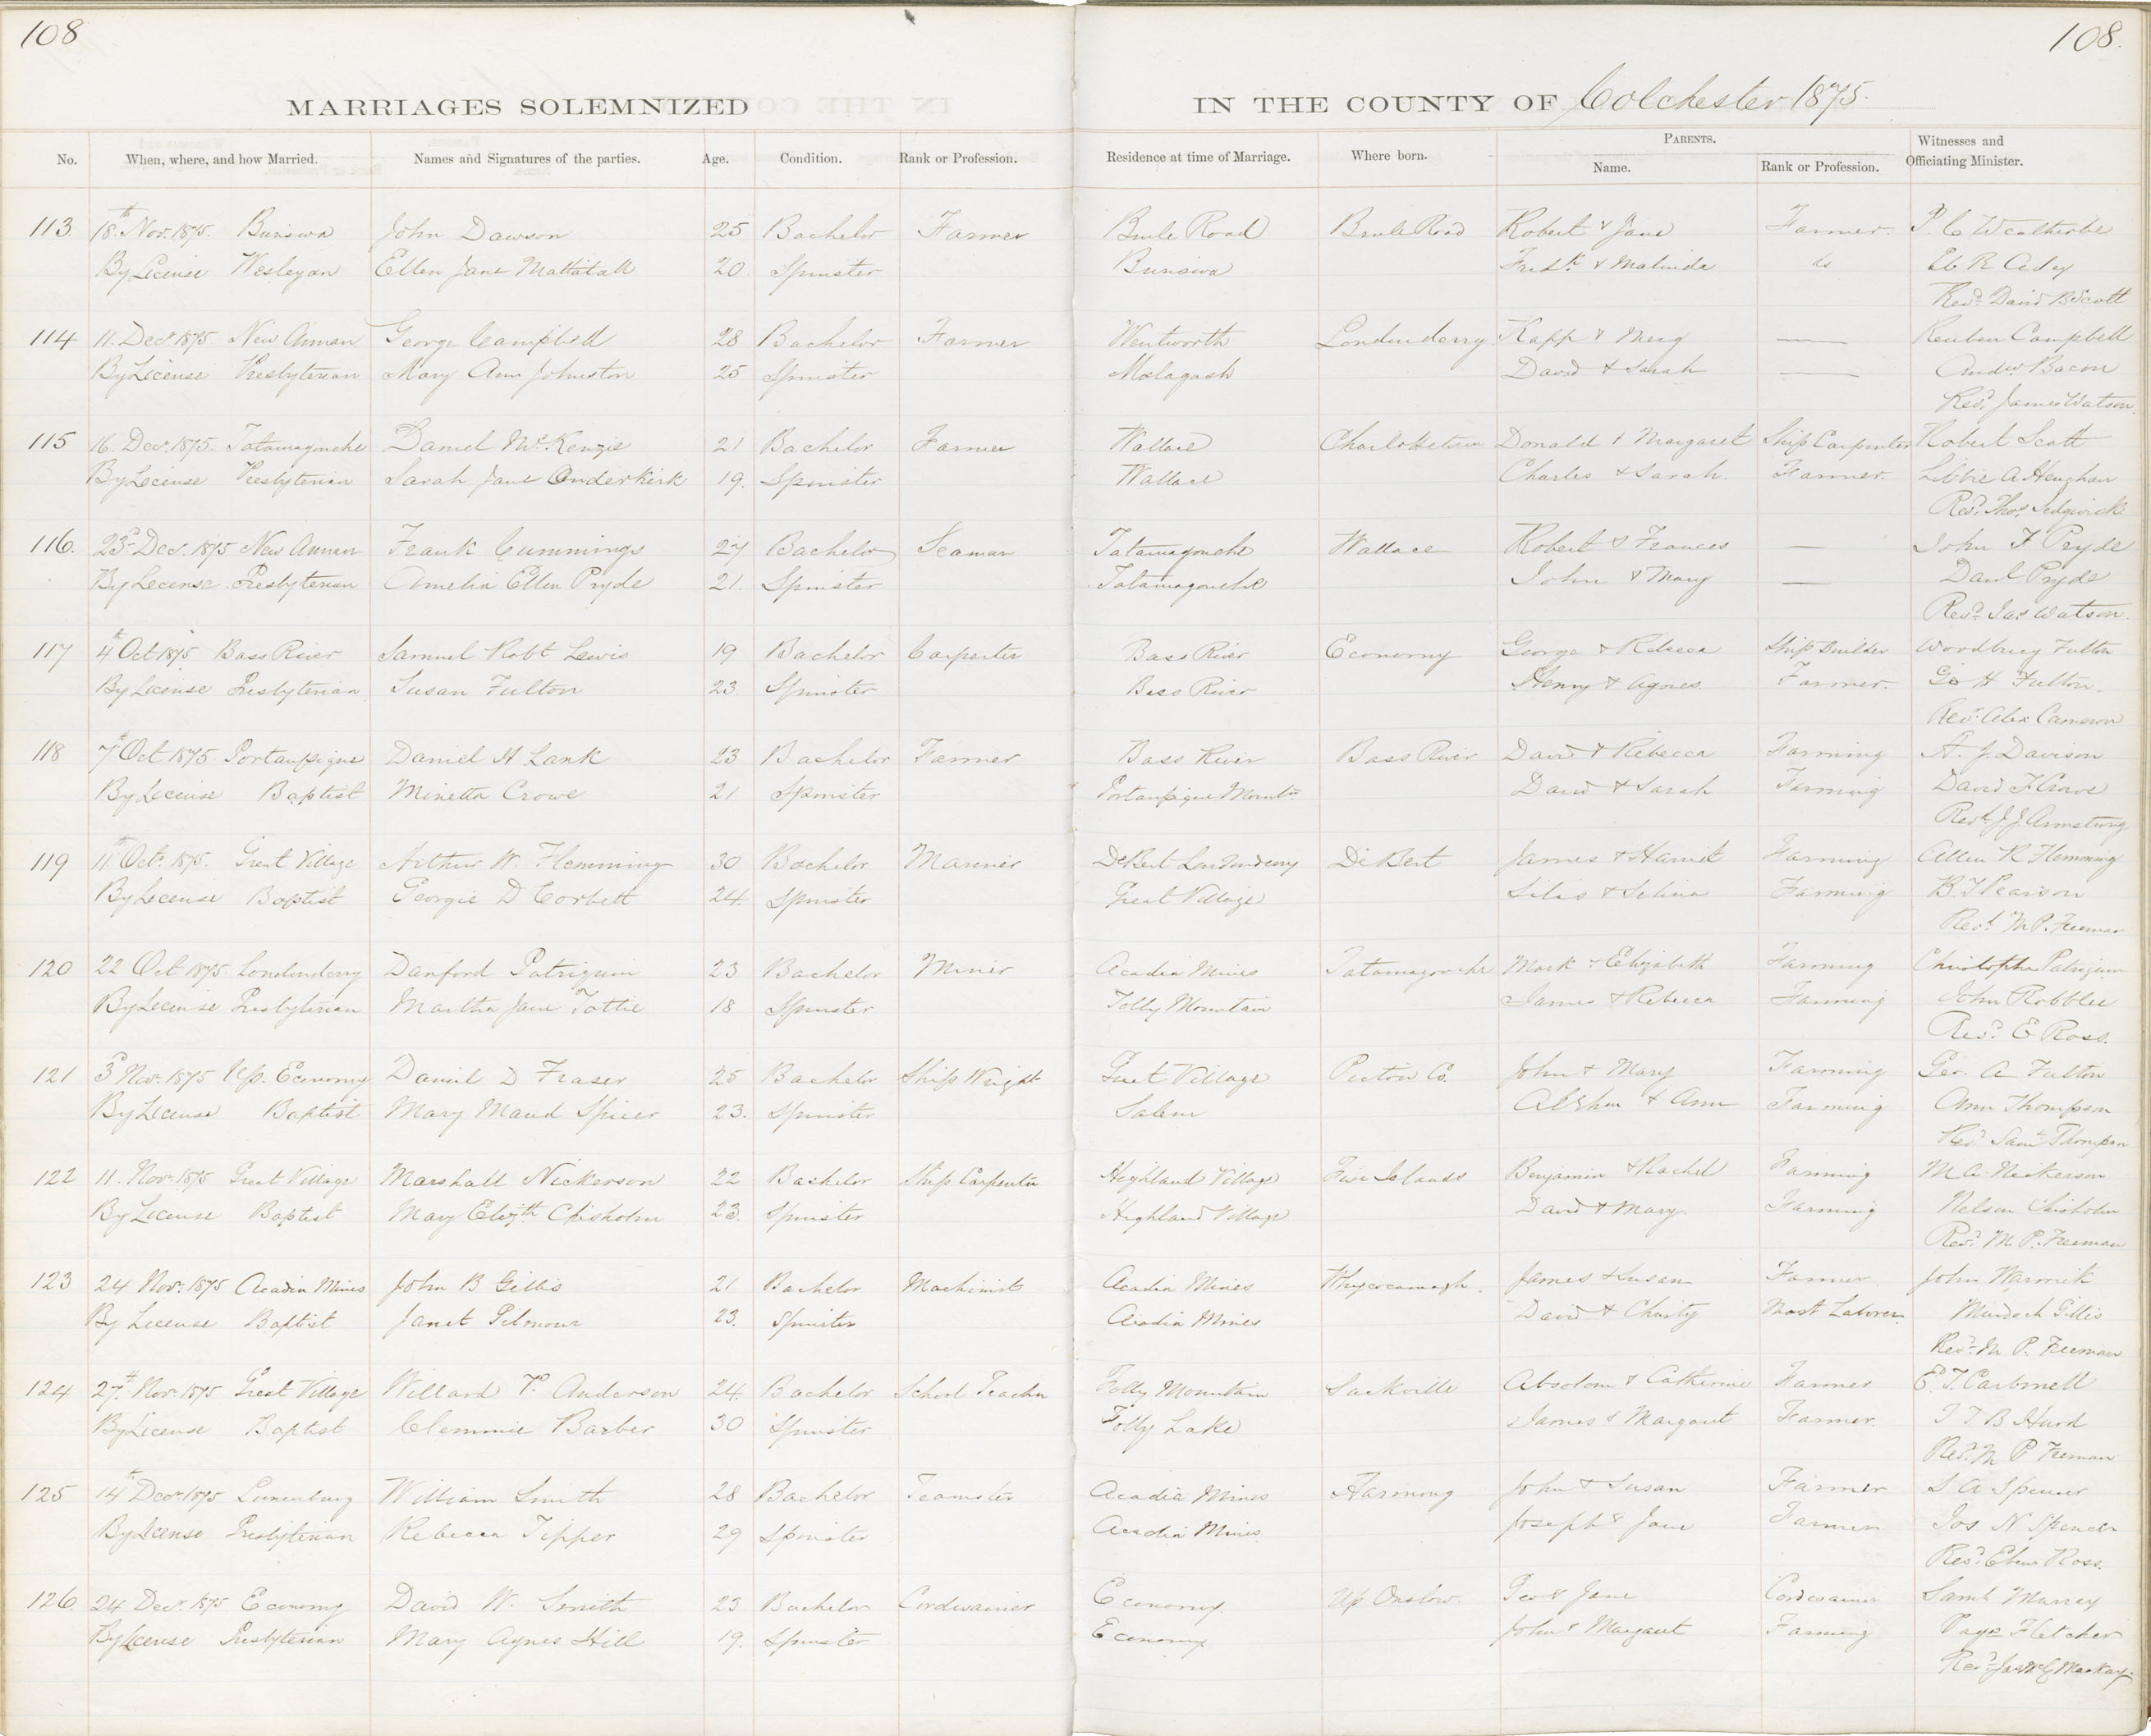 108
108.
MARRIAGES SOLEMNIZED IN THE COUNTY OF Colchester 1875.
No. When, where, and how Married. Names and Signatures of the parties. Age. Condition. Rank or Profession. Residence at time of Marriage. Where born. PARENTS. Name. Rank or Profession. Witnesses and Officiating Minister.
113 18th Nov. 1875. John Dawson 25 Bachelor Farmer Brule Road Brule Road Robert & Jane Farmer.
By License Wesleyan Ellen Jane Mattatall 20 Spinster Fredk & Malinda do
Revd David B Scott
114 11. Decr 1875 New Annan George Campbell 28 Bachelor Farmer Wentworth Londonderry Reuben Campbell
By License Presbyterian Mary Ann Johnston 25 Spinster Malagash David & Sarah Andw Bacon
Revd James Watson
115 16. Decr 1875. Tatamagouche Daniel McKenzie 21 Bachelor Farmer Wallace Charlottetown Donald & Margaret Ship Carpenter Robert Scott
By License Presbyterian Sarah Jane Onderkirk 19. Spinster Wallace Charles & Sarah. Farmer. Libbie A
Revd Thos Sedgwick
116. 23d Decr. 1875 New Annan Frank Cummings 27 Bachelor Seaman Tatamagouche Wallace Robert & Frances John F Pryde
By License Presbyterian Amelia Ellen Pryde 21. Spinster Tatamagouche John & Mary Danl Pryde
Revd Jas Watson
117 4th Oct 1875 Bass River Samuel Robt Lewis 19 Bachelor Carpenter Bass River Economy George & Rebecca Ship Builder Woodbury Fulton
By License Presbyterian Susan Fulton 23 Spinster Bass River Henry & Agnes Farmer. Geo H Fulton
Revd Alex Cameron
118 7th Oct 1875 Portaupique Daniel H Lank 23 Bachelor Farmer Bass River Bass River David & Rebecca Farming A. J. Davison
By License Baptist Minetta Crowe 21 Spinster Portaupique Mountn David & Sarah Farming David F Crowe
Revd J. J. Armstrong
119 11th Octr 1875. Great Village Arthur W. Flemming 30 Bachelor Mariner DeBert Londonderry DeBert James & Harriet Farming Allen R Flemming
By License Baptist Georgie D Corbett 24. Spinster Great Village Silas & Selina Farming B. T Pearson
Revd M. P. Freeman
120 22 Oct 1875 Londonderry Danford Patriquin 23 Bachelor Miner Acadia Mines Tatamagouche Mark & Elizabeth Farming Christopher Patriquin
By License Presbyterian Martha Jane Tottie 18 Spinster Folly Mountain James & Rebecca Farming John Robblee
Revd E Ross.
121 3d Nov. 1875 Up. Economy Daniel D Fraser 25 Bachelor Ship Wright Great Village Pictou Co. John & Mary Farming Geo. A Fulton
By License Baptist Mary Maud Spicer 23. Spinster Salem & Ann Farming Ann Thompson
Revd Saml Thompson
122 11. Nov. 1875 Great Village Marshall Nickerson 22 Bachelor Ship Carpenter Highland Village Five Islands Benjamin & Rachel Farming M. A. Nickerson
By License Baptist Mary Elizth Chisholm 23. Spinster Highland Village David & Mary. Farming Nelson Chisholm
Revd M. P. Freeman
123 24 Nov. 1875 Acadia Mines John B Gillis 21 Bachelor Machinist Acadia Mines Whycocomagh. James & Susan Farmer John Warwick
By License Baptist Janet Gilmour 23. Spinster Acadia Mines David & Charity Murdoch Gillis
Revd M. P. Freeman
124 27th Nov. 1875 Great Village Willard P. Anderson 24. Bachelor School Teacher Folly Mountain Sackville Absolom & Catherine Farmer
By License Baptist Clemmie Barber 30 Spinster Folly Lake James & Margaret Farmer. B Hurd
Revd M P Freeman
125 14th Decr 1875 Lunenburg William Smith 28 Bachelor Teamster Acadia Mines Harmony John & Susan Farmer S A Spencer
By License Presbyterian Rebecca Tipper 29 Spinster Acadia Mines Joseph & Jane Farmer Jos N Spencer
Revd Eben Ross.
126 24 Decr 1875 Economy David W. Smith 23 Bachelor Cordwainer Economy Up Onslow. Geo & Jane Cordwainer Saml Murray
By License Presbyterian Mary Agnes Hill 19. Spinster Economy John & Margaret Farming Fletcher
Revd Jas McG MacKay.